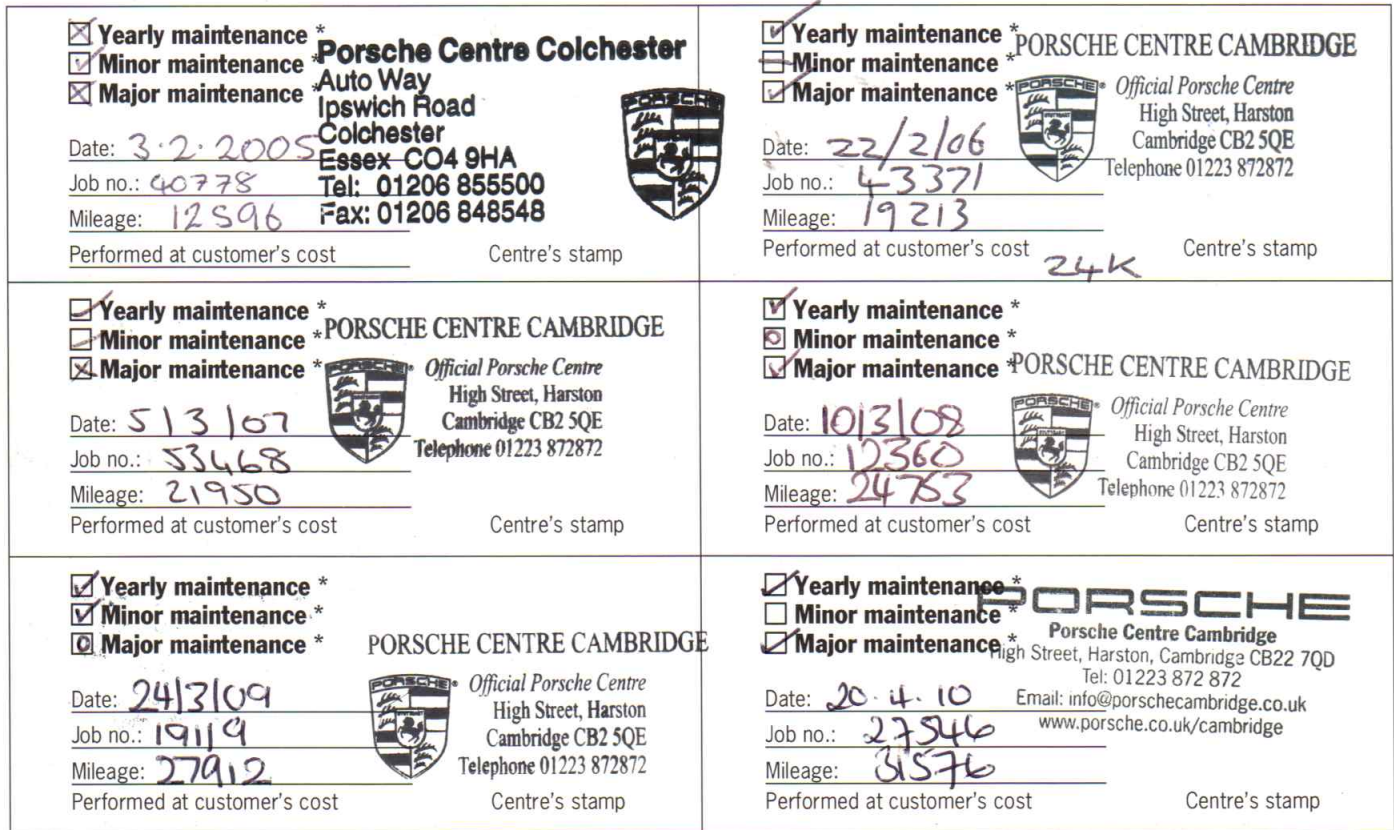 Yearly maintenance *
Minor maintenance *
Major maintenance *
Porsche Centre Colchester
Auto Way
Ipswich Road
Colchester
Essex CO4 9HA
Tel: 01206 855500
Fax: 01206 848548
PORSCHE
Date: 3.2.2005
Job no.: 40778
Mileage: 12596
Performed at customer's cost
Centre's stamp
Yearly maintenance *
Minor maintenance *
Major maintenance *
PORSCHE CENTRE CAMBRIDGE
PORSCHE
Official Porsche Centre
High Street, Harston
Cambridge CB2 5QE
Telephone 01223 872872
Date: 22/2/06
Job no.: 43371
Mileage: 19213
Performed at customer's cost
24K
Centre's stamp
Yearly maintenance *
Minor maintenance *
Major maintenance *
PORSCHE CENTRE CAMBRIDGE
PORSCHE
Official Porsche Centre
High Street, Harston
Cambridge CB2 5QE
Telephone 01223 872872
Date: 5/3/07
Job no.: 53468
Mileage: 21950
Performed at customer's cost
Centre's stamp
Yearly maintenance *
Minor maintenance *
Major maintenance *
PORSCHE CENTRE CAMBRIDGE
PORSCHE
Official Porsche Centre
High Street, Harston
Cambridge CB2 5QE
Telephone 01223 872872
Date: 10/3/08
Job no.: 12360
Mileage: 24763
Performed at customer's cost
Centre's stamp
Yearly maintenance *
Minor maintenance *
Major maintenance *
PORSCHE CENTRE CAMBRIDGE
PORSCHE
Official Porsche Centre
High Street, Harston
Cambridge CB2 5QE
Telephone 01223 872872
Date: 24/3/09
Job no.: 19119
Mileage: 27912
Performed at customer's cost
Centre's stamp
Yearly maintenance *
Minor maintenance *
Major maintenance *
PORSCHE
Porsche Centre Cambridge
High Street, Harston, Cambridge CB22 7QD
Tel: 01223 872 872
Email: info@porschecambridge.co.uk
www.porsche.co.uk/cambridge
Date: 20.4.10
Job no.: 27546
Mileage: 31576
Performed at customer's cost
Centre's stamp